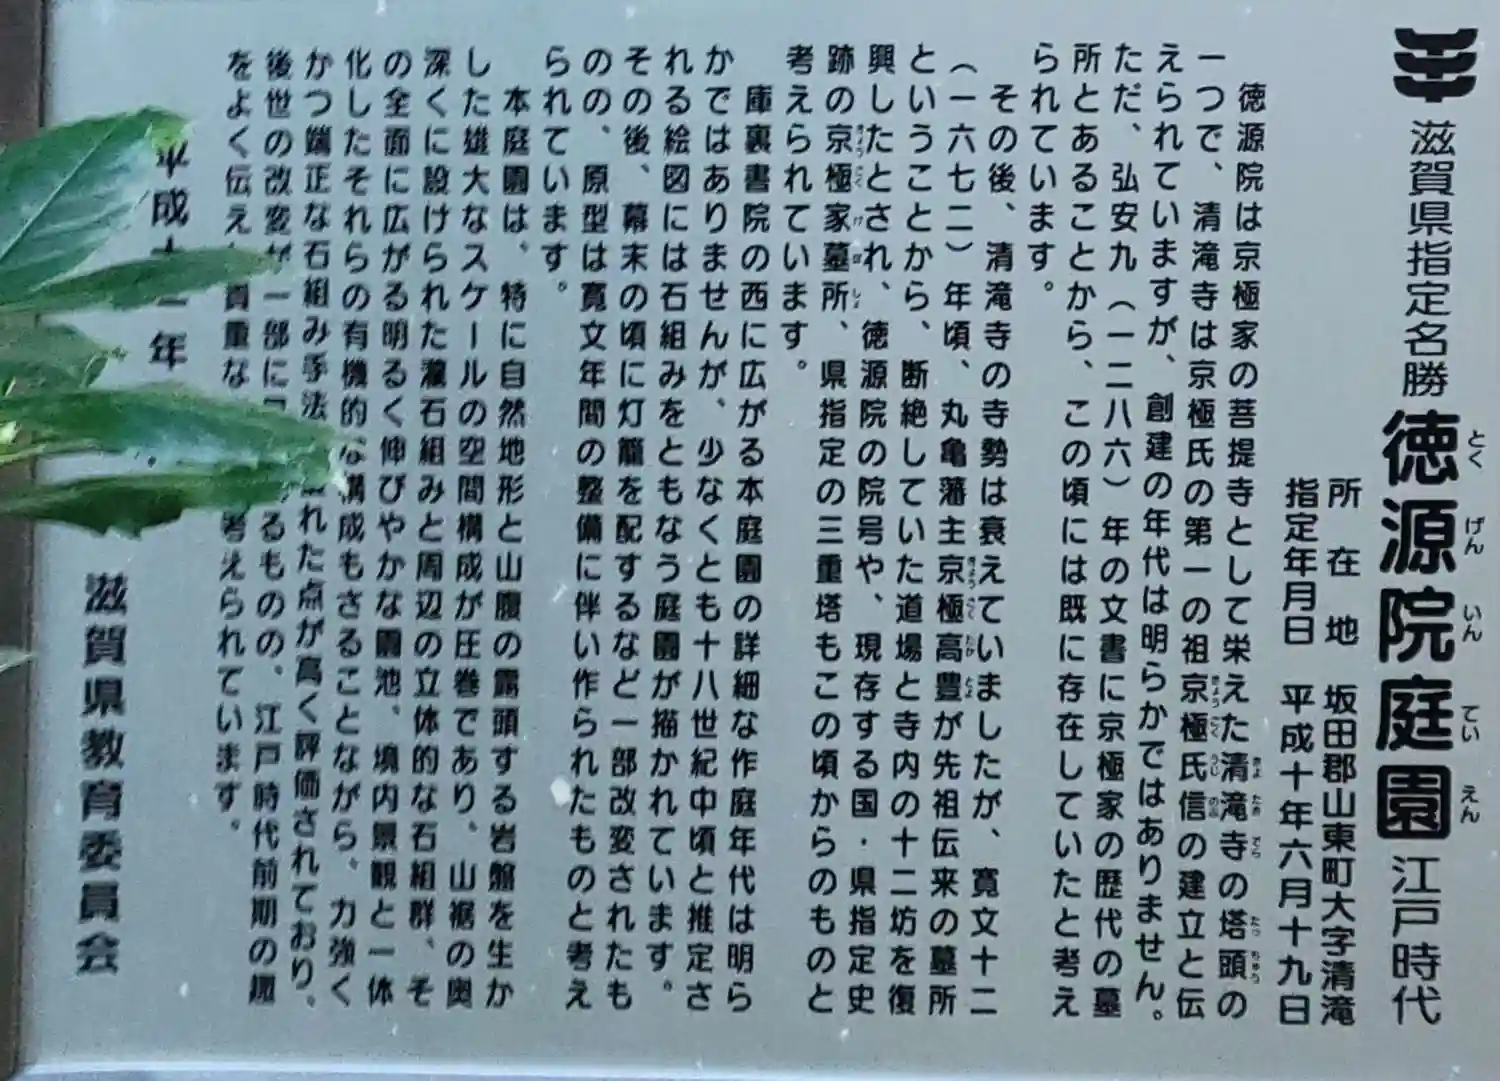 滋賀県指定名勝 徳源院庭園 江戸時代
とくげんいんていえん
所在地 坂田郡山東町大字清滝
指定年月日 平成十年六月十九日
徳源院は京極家の菩提寺として栄えた清滝寺の塔頭の
きよたきでら たっちゅう
一つで、清滝寺は京極氏の第一の祖京極氏信の建立と伝
きょうごくうじのぶ
えられていますが、創建の年代は明らかではありません。
ただ、弘安九（一二八六）年の文書に京極家の歴代の墓
所とあることから、この頃には既に存在していたと考え
られています。
その後、清滝寺の寺勢は衰えていましたが、寛文十二
（一六七二）年頃、丸亀藩主京極高豊が先祖伝来の墓所
きょうごくたかとよ
ということから、断絶していた道場と寺内の十二坊を復
興したとされ、徳源院の院号や、現存する国・県指定史
跡の京極家墓所、県指定の三重塔もこの頃からのものと
きょうごくけぼしょ
考えられています。
庫裏書院の西に広がる本庭園の詳細な作庭年代は明ら
かではありませんが、少なくとも十八世紀中頃と推定さ
れる絵図には石組みをともなう庭園が描かれています。
その後、幕末の頃に灯籠を配するなど一部改変されたも
のの、原型は寛文年間の整備に伴い作られたものと考え
られています。
本庭園は、特に自然地形と山腹の露頭する岩盤を生か
した雄大なスケールの空間構成が圧巻であり、山裾の奥
深くに設けられた滝石組みと周辺の立体的な石組群、そ
の全面に広がる明るく伸びやかな園池、境内景観と一体
化したそれらの有機的な構成もさることながら、力強く
かつ端正な石組み手法 れた点が高く評価されており、
後世の改変が一部に るものの、江戸時代前期の趣
をよく伝え 貴重な 考えられています。
平成十 年
滋賀県教育委員会